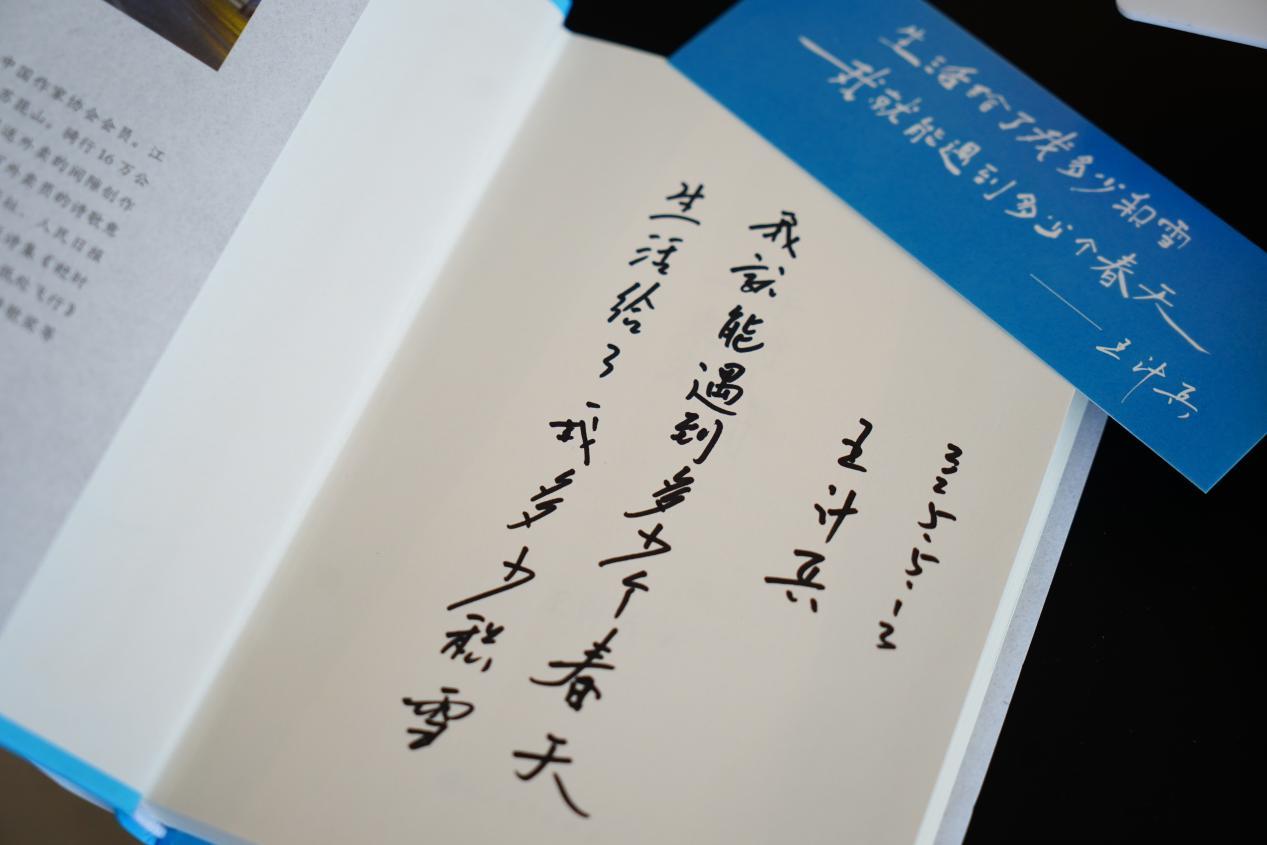 中国作家协会会员。江
苏昆山。骑行16万公
送外卖的间隙创作
外卖员的诗歌意
人民日报
诗集《赶时
低处飞行》
生活给了我多少积雪
我就能遇到多少个春天
王计兵
生活给了我多少积雪
我就能遇到多少个春天
——王计兵